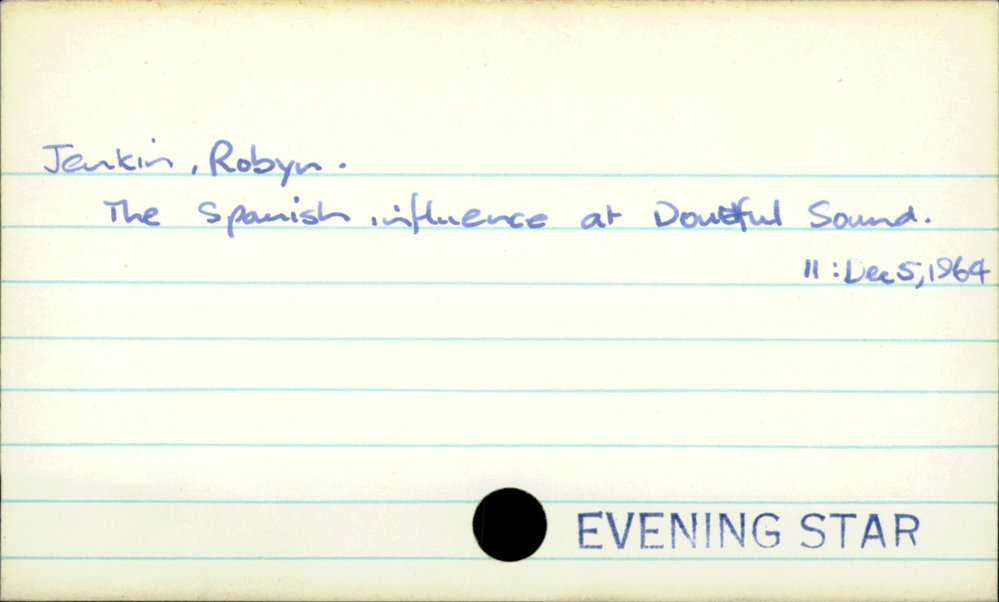 Jenkin, Robyn.
The Spanish influence at Doubtful Sound.
11: Dec 5, 1964
EVENING STAR